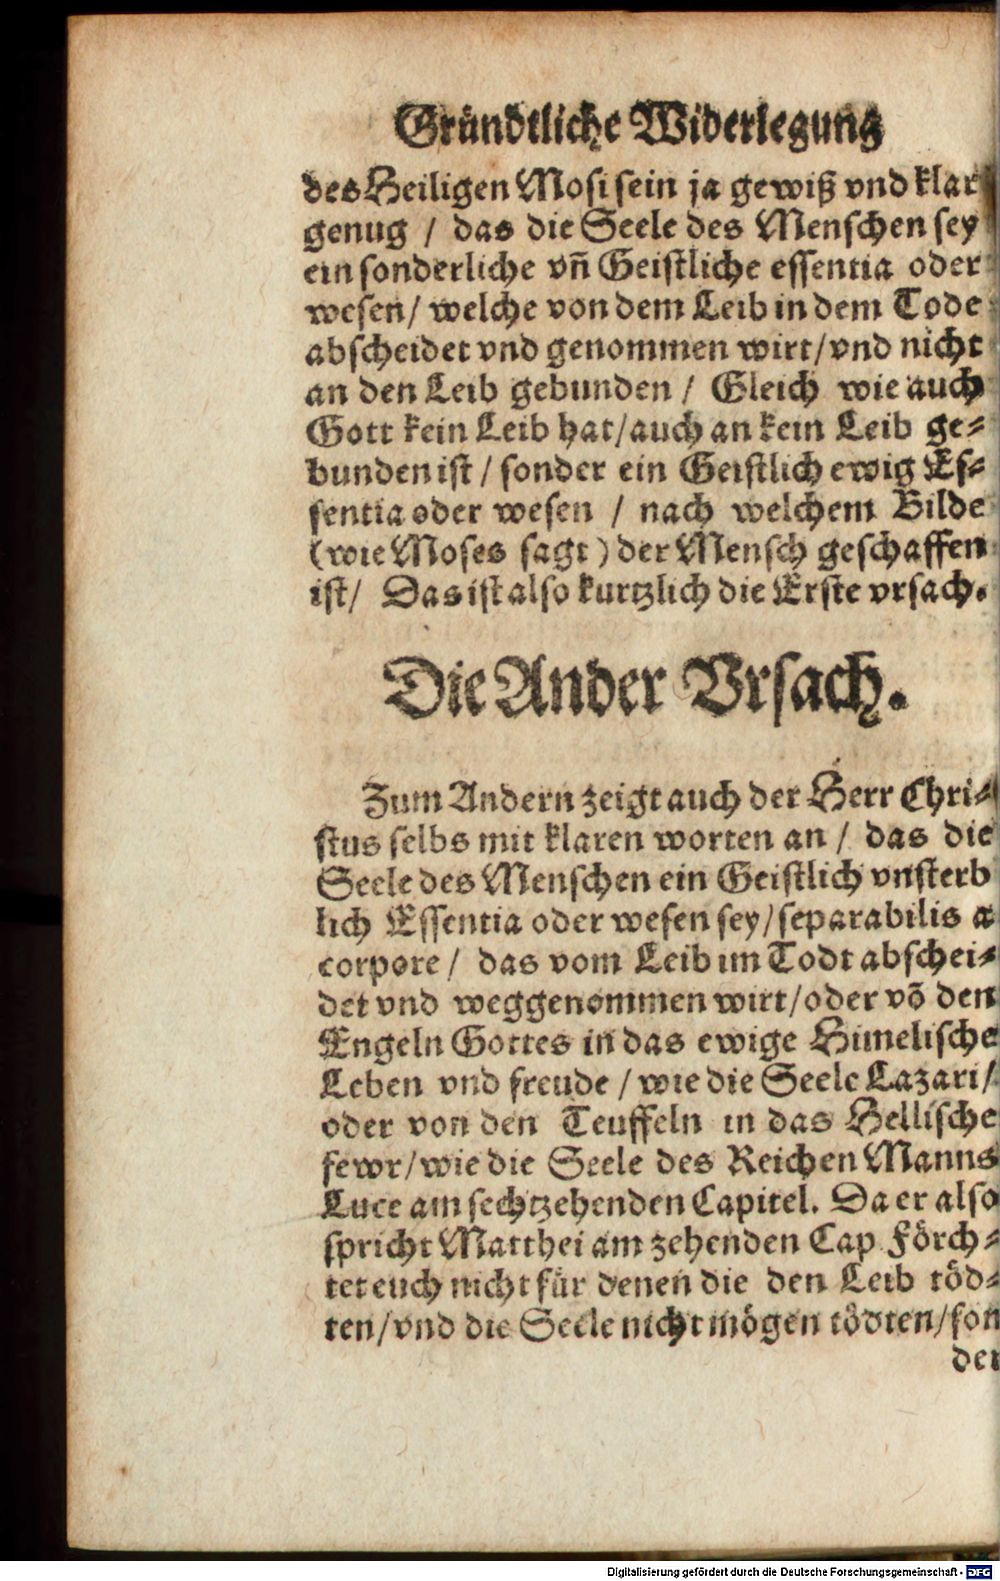 Gründtliche Widerlegung
des Heiligen Mosi sein ja gewiß vnd klar
genug / das die Seele des Menschen sey
ein sonderliche vñ Geistliche essentia oder
wesen / welche von dem Leib in dem Tode
abscheidet vnd genommen wirt / vnd nicht
an den Leib gebunden / Gleich wie auch
Gott kein Leib hat / auch an kein Leib ge-
bunden ist / sonder ein Geistlich ewig Es-
sentia oder wesen / nach welchem Bilde
(wie Moses sagt) der Mensch geschaffen
ist / Das ist also kurtzlich die Erste vrsach.
Die Ander Vrsach.
Zum Andern zeigt auch der Herr Chri-
stus selbs mit klaren worten an / das die
Seele des Menschen ein Geistlich vnsterb
lich Essentia oder wesen sey / separabilis a
corpore / das vom Leib im Todt abschei-
det vnd weggenommen wirt / oder võ den
Engeln Gottes in das ewige Himelische
Leben vnd freude / wie die Seele Lazari /
oder von den Teuffeln in das Hellische
fewr / wie die Seele des Reichen Manns
Luce am sechtzehenden Capitel. Da er also
spricht Matthei am zehenden Cap Förch-
tet euch nicht für denen die den Leib töd-
ten / vnd die Seele nicht mögen tödten / son
der
Digitalisierung gefördert durch die Deutsche Forschungsgemeinschaft - DFG